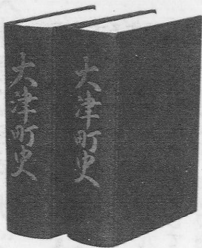 大津町史
大津町史